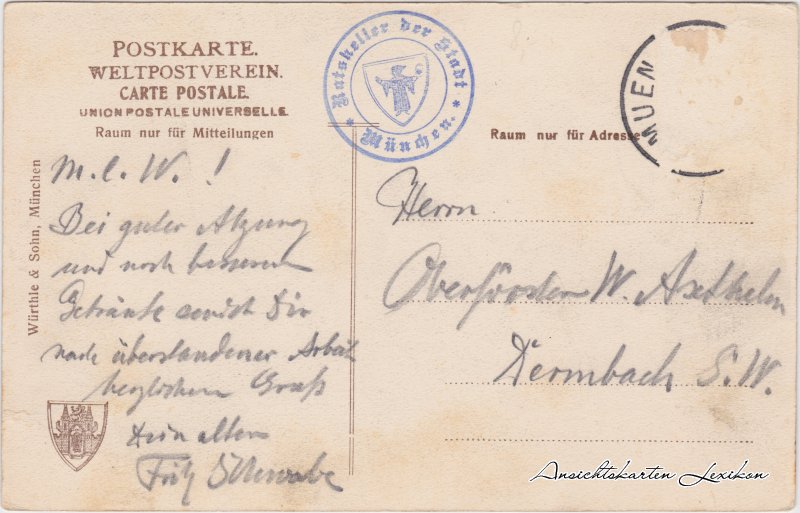 POSTKARTE.
WELTPOSTVEREIN.
CARTE POSTALE.
UNION POSTALE UNIVERSELLE.
Raum nur für Mitteilungen
Ratskeller der Stadt
* München. *
MUEN
Raum nur für Adresse
Würthle & Sohn, München
M. l. W. !
Bei guter Atzung
und noch besserem
Getränke send ich Dir
nach überstandener Arbeit
herzlichen Gruß
Dein alter
Fritz Schwabe
Herrn
Oberförster W. Axthelm
Dermbach S. W.
Ansichtskarten Lexikon